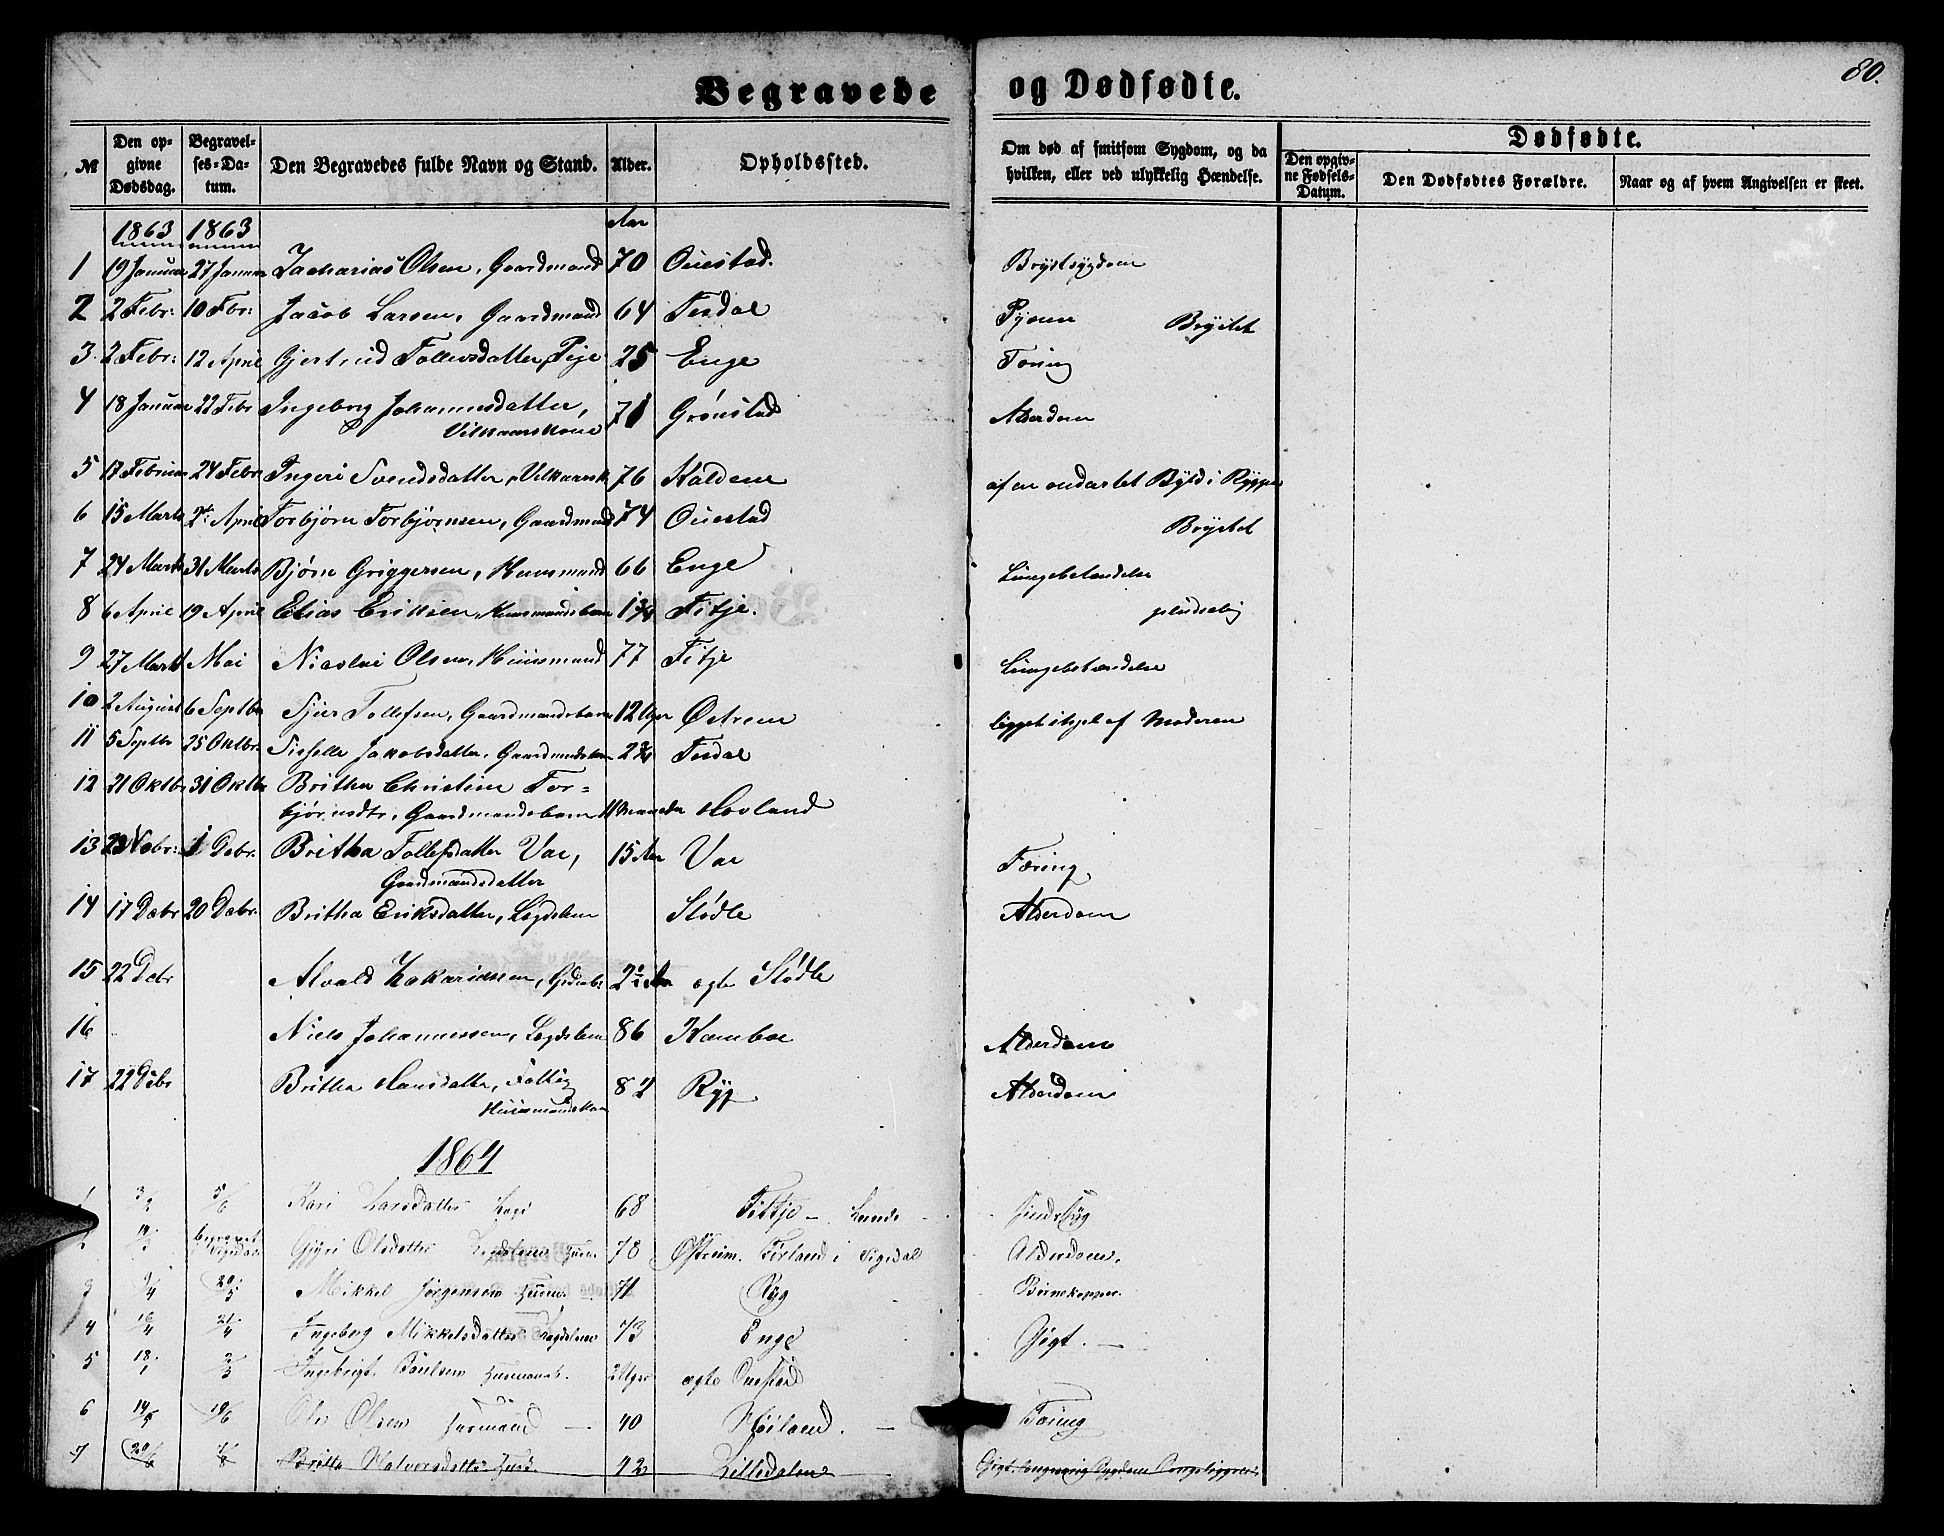 Begravede og Dødfødte.
80.
№ Den opgivne Dødsdag. Begravelses-Datum. Den Begravedes fulde Navn og Stand. Alder. Opholdssted. Om død af smitsom Sygdom, og da hvilken, eller ved ulykkelig Hændelse. Dødfødte. Den opgivne Fødsels-Datum. Den Dødfødtes Forældre. Naar og af hvem Angivelsen er skeet.
1863 1863 Aar
1 19 Januar 27 Januar Zacharias Olsen, Gaardmand 70 Ouestad. Brystsygdom
2 2 Febr: 10 Fbr: Jacob Larsen, Gaardmand 64 Tesdal Brystet
3 2 Febr: 12 April Gjertrud Tollevsdatter, Pige 25 Enge Tæring
4 18 Januar 22 Febr Ingeborg Johannesdatter, Vilkaarskone 71 Grönstad Alderdom
5 17 Februar 24 Febr Ingeri Svendsdatter, Vilkaarsk 76 Haldene af en ondartet Byld i Ryggen
6 15 Marts 2 April Torbjörn Torbjörnsen, Gaardmand 74 Ouestad Brystet
7 24 Marts 31 Marts Bjørn Griggersen, Huusmand 66 Enge Lungebetændelse
8 6 April 19 April Elias Eriksen, Huusmandsbarn 1 3/4 Fitje. pludselig
9 27 Marts Mai Nicolai Olsen, Huusmand 77 Fitje Lungebetændelse
10 2 August 6 Septbr Sjur Tollefsen, Gaardmandsbarn 12 Uger Østrem ligget ihjel af Moderen
11 5 Septbr 25 Oktbr. Sisselle Jakobsdatter, Gaardmandsbarn 2 3/4 Tesdal
12 21 Oktbr 31 Oktbr Britha Christine Torbjörnsdtr, Gaardmandsbarn 11 Maaneder Hovland
13 23 Novbr: 1 Debr. Britha Tollefsdatter Vae, Gaardmandsdatter 15 Aar Vae Tæring
14 17 Debr 20 Debr. Britha Eriksdatter, Lægdslem Stödle Alderdom
15 22 Debr Alvald Zakariassen, 2 1/2 Aar ægte Stödle
16 Niels Johannessen, Lægdslem 86 Kamboe Alderdom
17 22 Debr Britha Hansdatter, Fattig Huusmandskone 82 Ryg Alderdom
1864
1 3/2 5/6 Kari Larsdatter 68 Fitje – Lunde Sindssyg
2 begravet i Vigedal Gjyri Olsdatter 78 Østreim. i Vigedal Alderdom.
3 9/4 20/5 Mikkel Jørgensen 71 Ryg Børnekopper.
4 16/4 21/4 Ingeborg Mikkelsdatter Lægdslem 73 Enge Gigt. –
5 18/1 2/3 Ingebrigt Poulsen 2 Uger ægte Ouestad
6 19/6 Ole Olsen 40 Høiland. – Tæring
7 Britta Halvorsdatter 42 Lilledalen Gigt. langvarig Sygdom